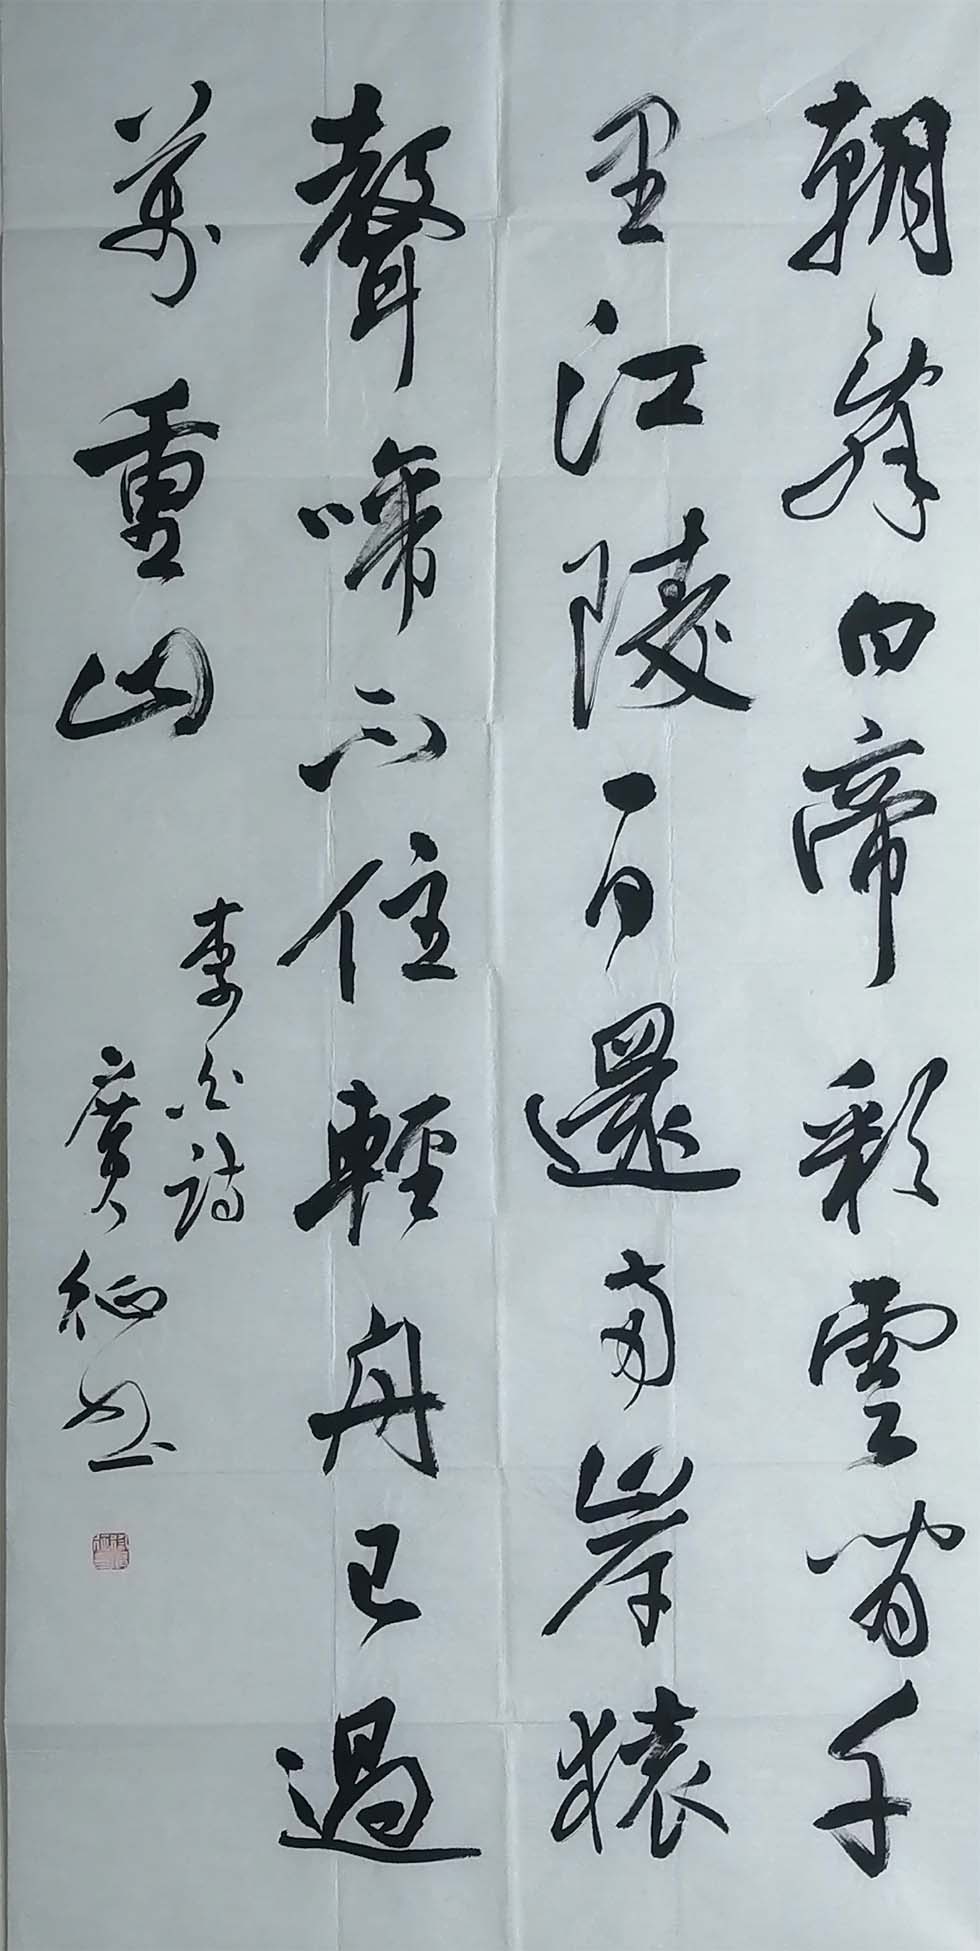 朝辭白帝彩雲間千
里江陵一日還兩岸猿
聲啼不住輕舟已過
萬重山
李白詩
廣征书